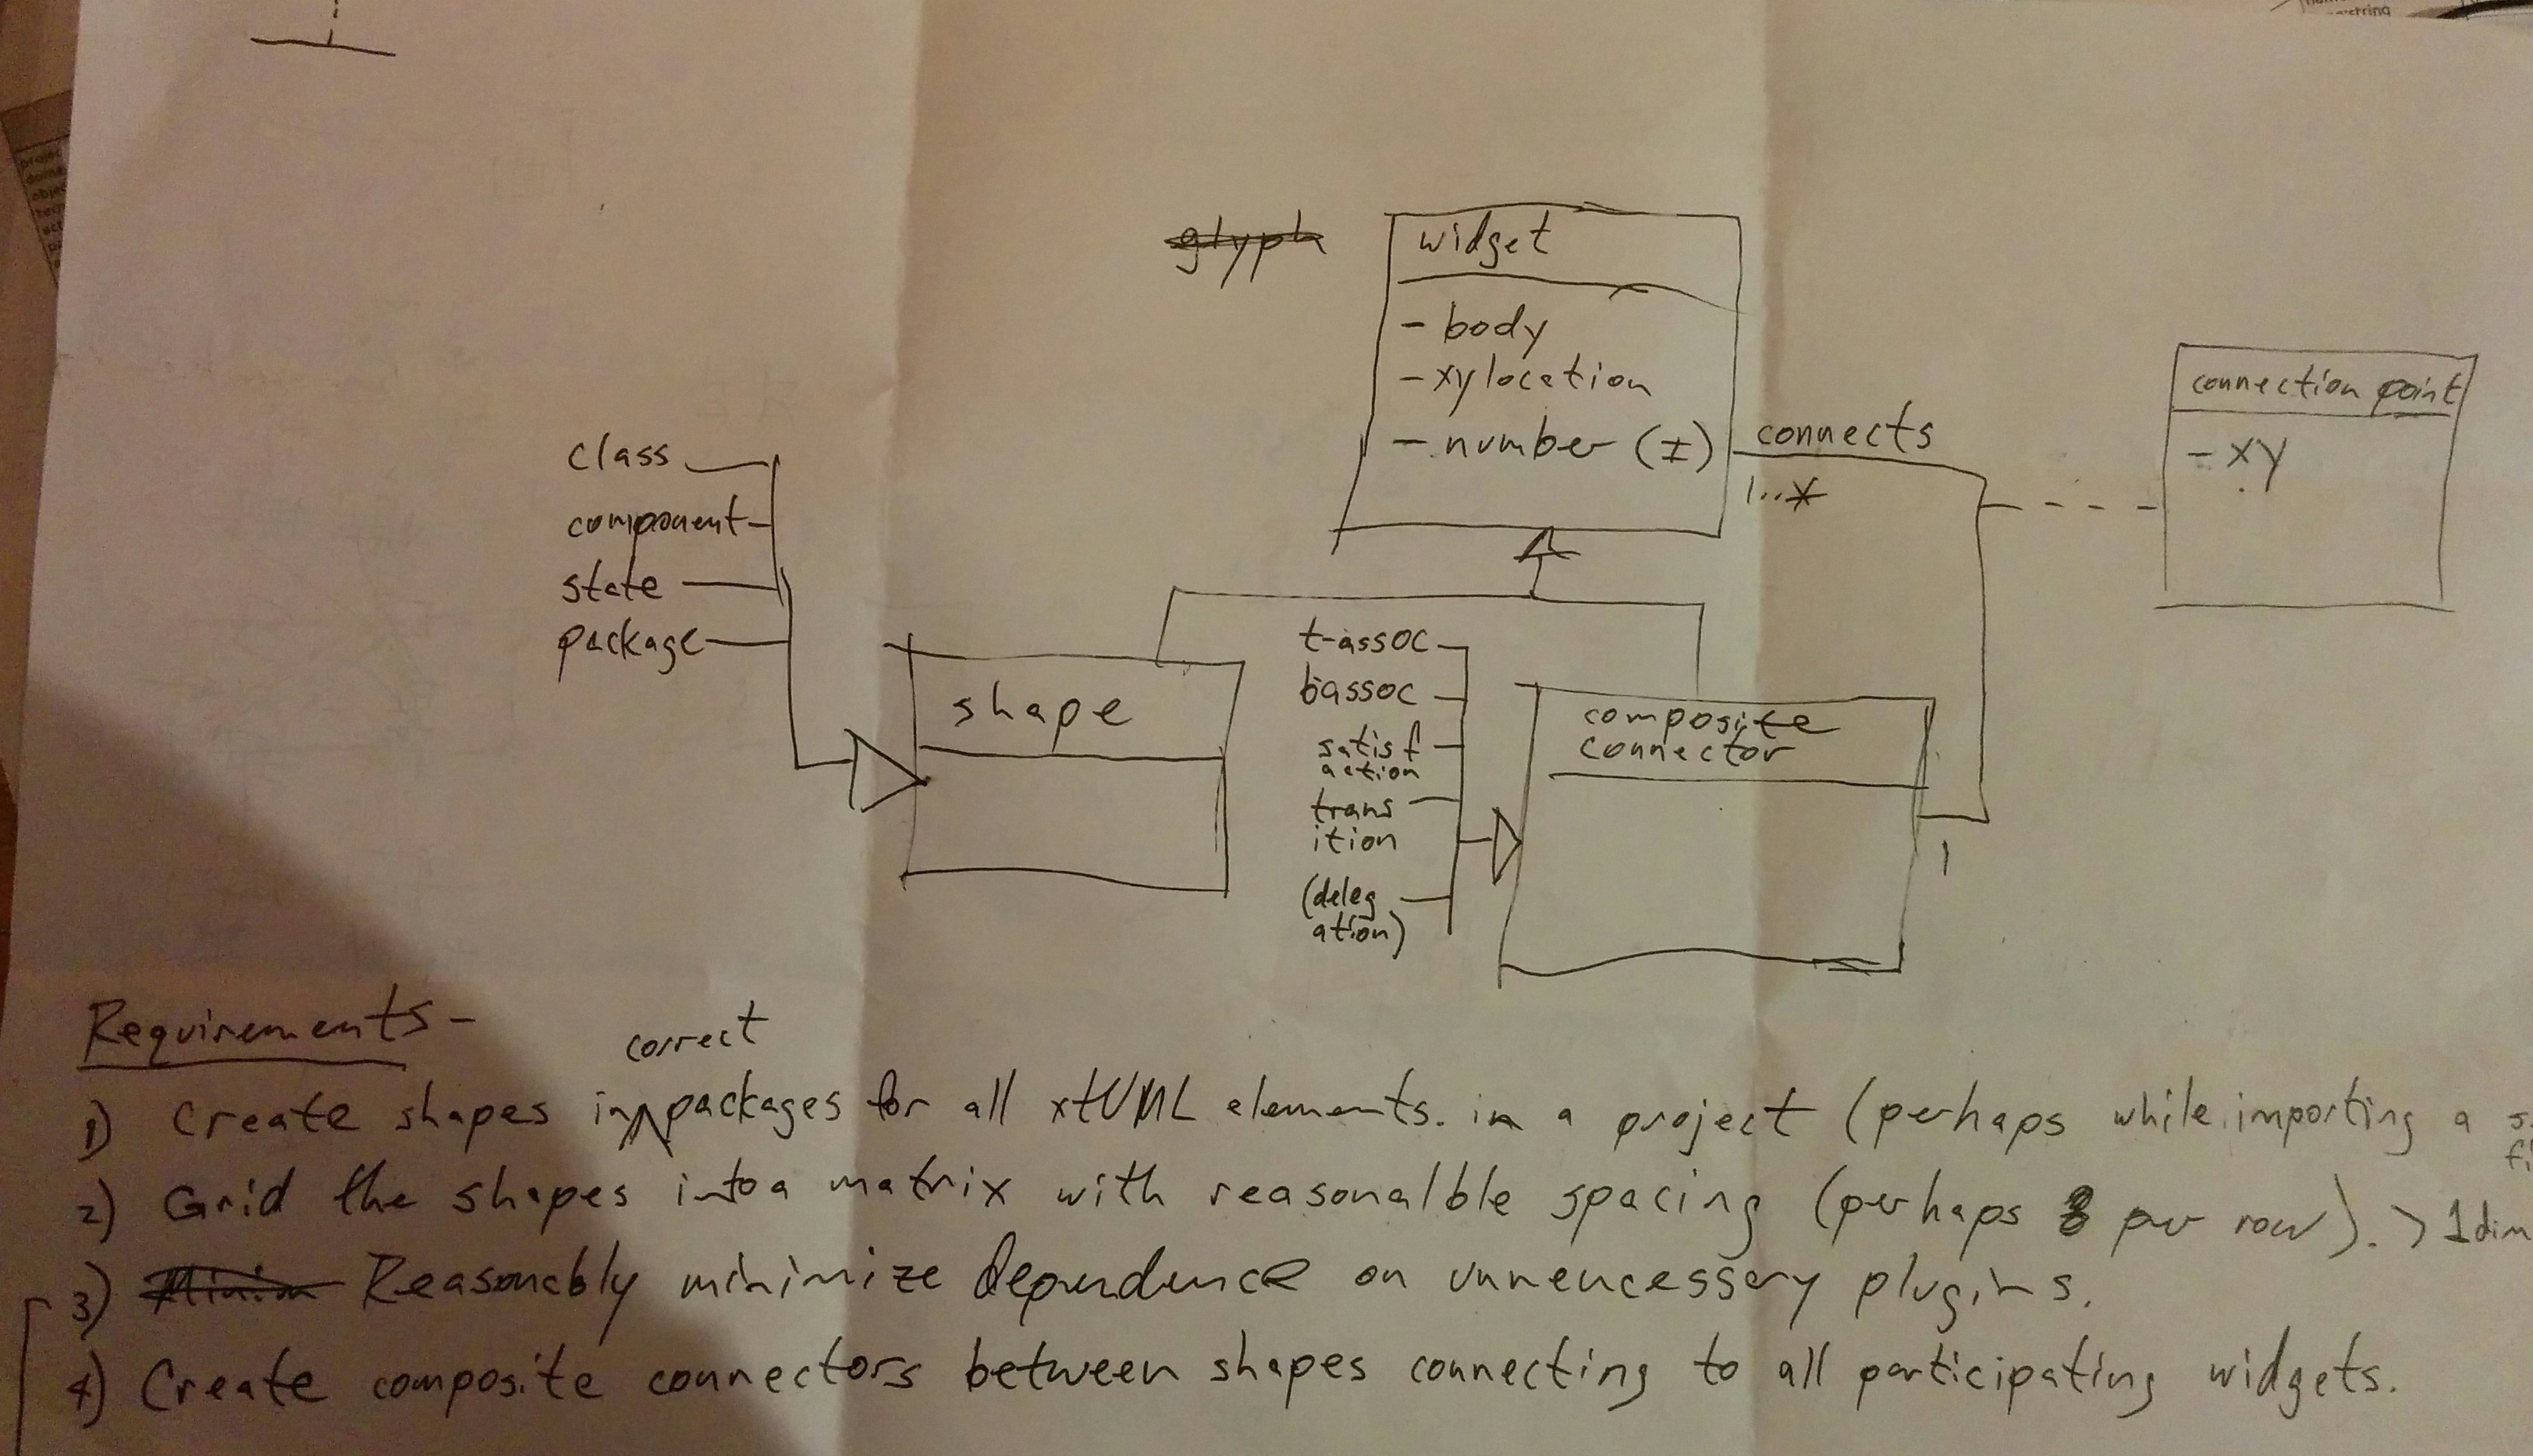 string
projec
doma
objec
glyph
widget
- body
- xylocation
- number (I)
connects
1..*
connection point
- xy
class
component
state
package
shape
t-assoc
bassoc
satisf
action
trans
ition
(deleg
ation)
composite
connector
1
Requirements -
correct
1) Create shapes in packages for all xtUML elements. in a project (perhaps while importing a
2) Grid the shapes into a matrix with reasonalble spacing (perhaps 8 per row). > 1 dim
3) Minim Reasonably minimize dependence on unneucessary plugins.
4) Create composite connectors between shapes connecting to all participating widgets.